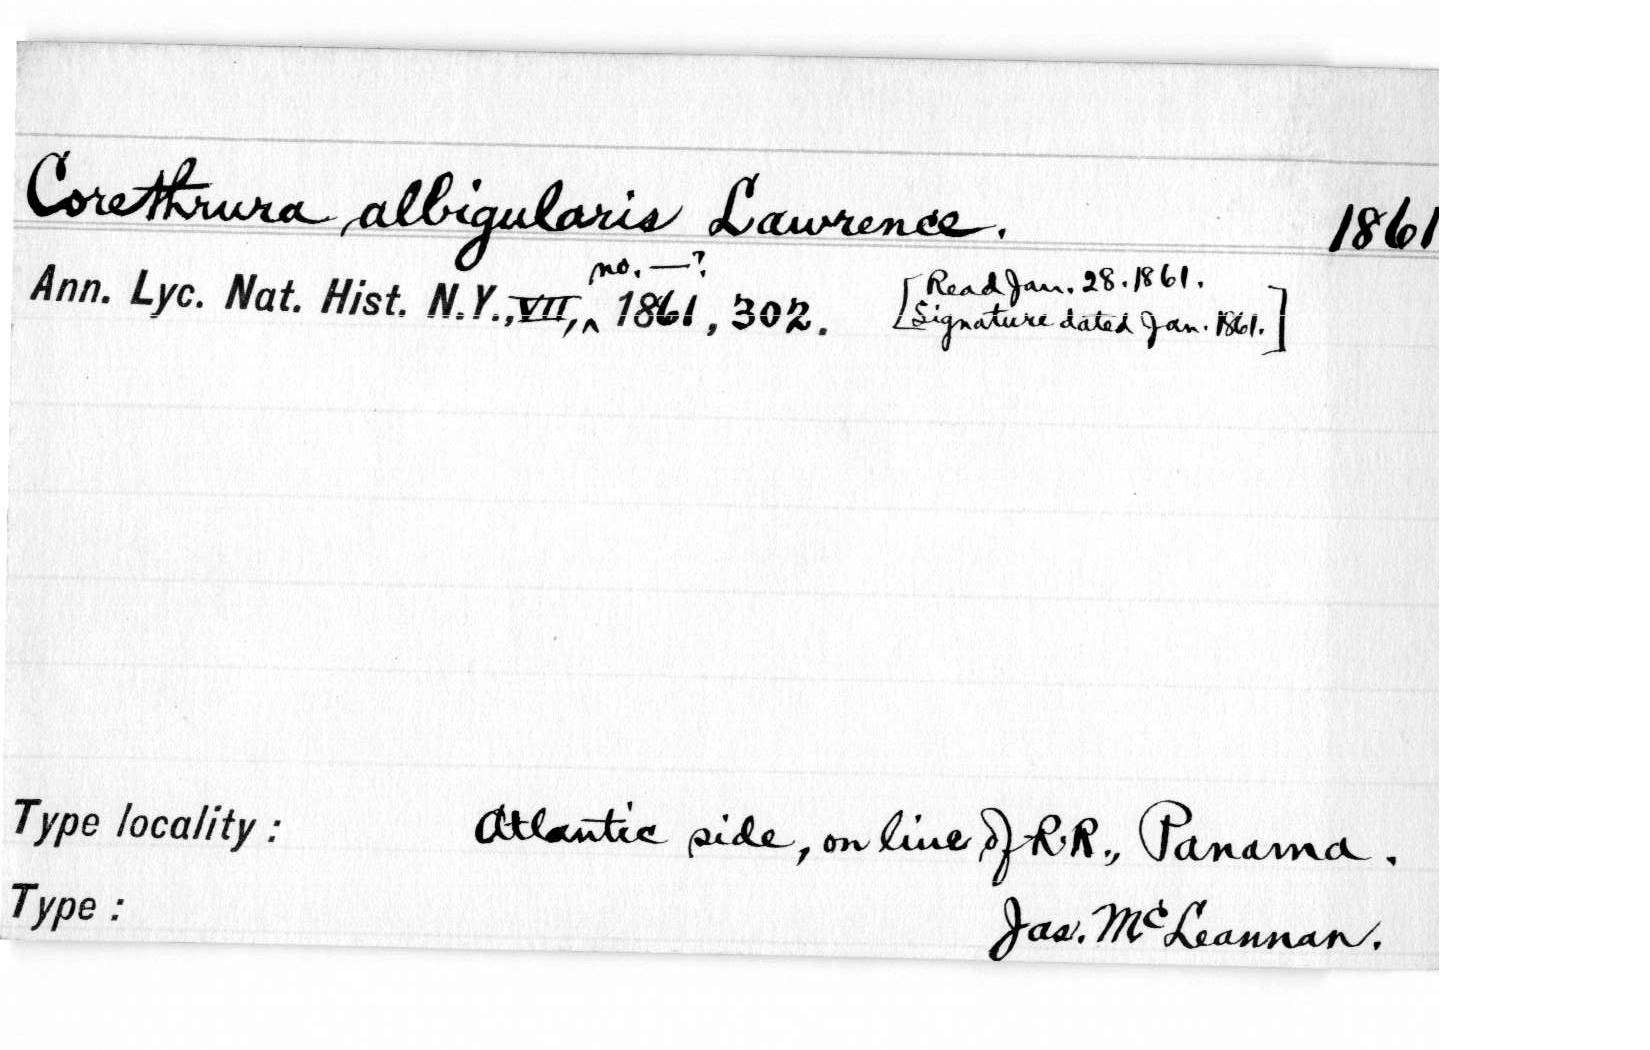 Corethrura albigularis Lawrence. 1861
no. —?
Ann. Lyc. Nat. Hist. N.Y., VII, ^ 1861, 302. [Read Jan. 28. 1861.
Signature dated Jan. 1861.]
Type locality: Atlantic side, on line of R.R., Panama.
Type: Jas. McLeannan.